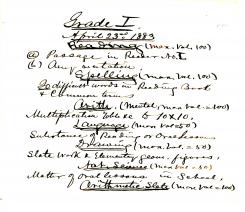 Grade I
April 23rd 1883
Reading (max. Val. 100)
(a) Passage in Reader No. I
(b) Any recitation,
Spelling (max val. 100)
20 different words in Reading Book
& Common terms
Arith. (Mental, max val = 100)
Multiplication Table to 10x10,
Language (max val=50)
Substance of Reading or Oral lesson
Drawing (max val. = 50)
Slate Work & Elementary geom. figures,
Nat. Science (max val = 50)
Matter of oral lessons in School,
Arithmetic Slate (max val = 100)